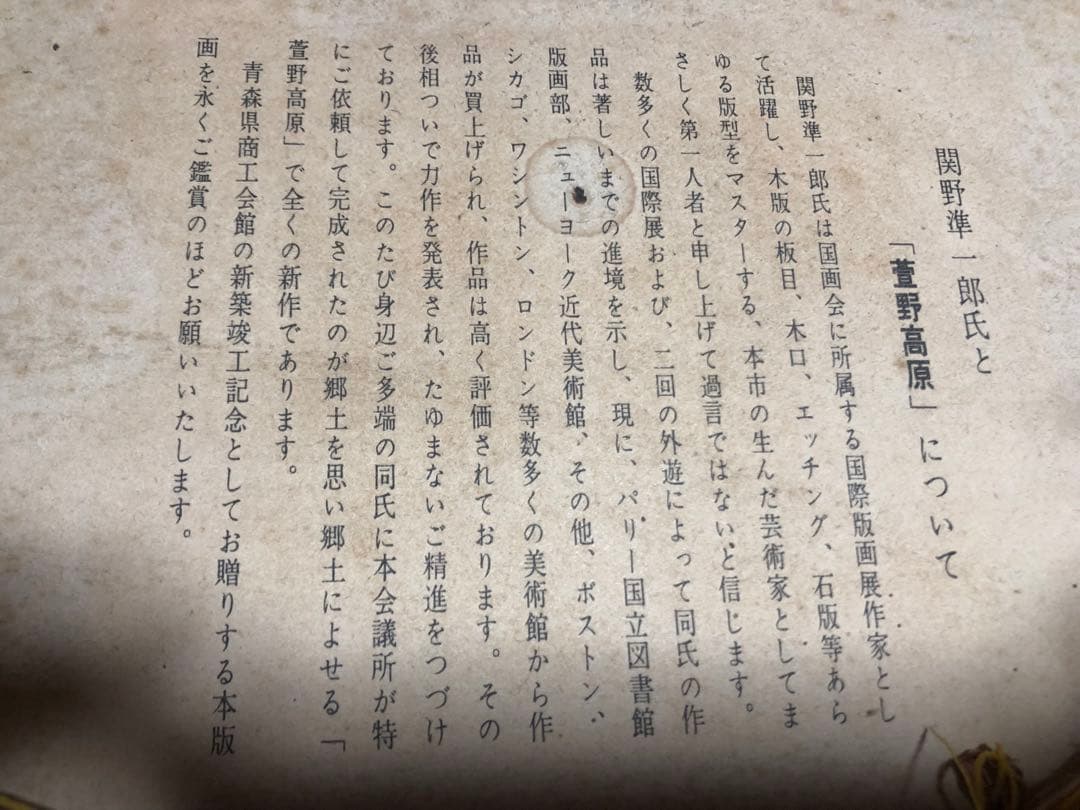 関野準一郎氏と
「萱野高原」について
関野準一郎氏は国画会に所属する国際版画展作家とし
て活躍し、木版の板目、木口、エッチング、石版等あら
ゆる版型をマスターする、本市の生んだ芸術家としてま
さしく第一人者と申し上げて過言ではないと信じます。
数多くの国際展および、二回の外遊によって同氏の作
品は著しいまでの進境を示し、現に、パリー国立図書館
版画部、ニューヨーク近代美術館、その他、ボストン、
シカゴ、ワシントン、ロンドン等数多くの美術館から作
品が買上げられ、作品は高く評価されております。その
後相ついで力作を発表され、たゆまないご精進をつづけ
ております。このたび身辺ご多端の同氏に本会議所が特
にご依頼して完成されたのが郷土を思い郷土によせる「
萱野高原」で全くの新作であります。
青森県商工会館の新築竣工記念としてお贈りする本版
画を永くご鑑賞のほどお願いいたします。